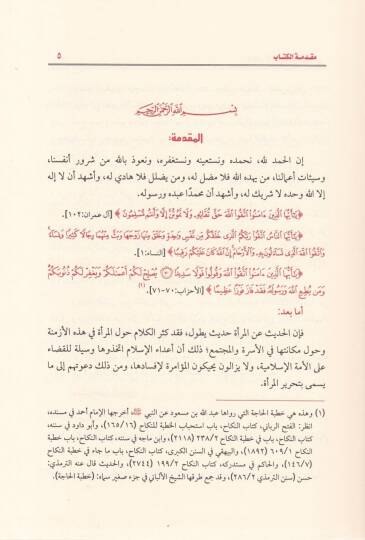 مقدمة الكتاب ٥
بسم الله الرحمن الرحيم
المقدمة:
إن الحمد لله، نحمده ونستعينه ونستغفره، ونعوذ بالله من شرور أنفسنا،
وسيئات أعمالنا، من يهده الله فلا مضل له، ومن يضلل فلا هادي له، وأشهد أن لا إله
إلا الله وحده لا شريك له، وأشهد أن محمدًا عبده ورسوله.
﴿يَٰٓأَيُّهَا ٱلَّذِينَ ءَامَنُوا۟ ٱتَّقُوا۟ ٱللَّهَ حَقَّ تُقَاتِهِۦ وَلَا تَمُوتُنَّ إِلَّا وَأَنتُم مُّسْلِمُونَ﴾ [آل عمران:١٠٢].
﴿يَٰٓأَيُّهَا ٱلنَّاسُ ٱتَّقُوا۟ رَبَّكُمُ ٱلَّذِى خَلَقَكُم مِّن نَّفْسٍ وَٰحِدَةٍ وَخَلَقَ مِنْهَا زَوْجَهَا وَبَثَّ مِنْهُمَا رِجَالًا كَثِيرًا وَنِسَآءً
وَٱتَّقُوا۟ ٱللَّهَ ٱلَّذِى تَسَآءَلُونَ بِهِۦ وَٱلْأَرْحَامَ إِنَّ ٱللَّهَ كَانَ عَلَيْكُمْ رَقِيبًا﴾ [النساء:١].
﴿يَٰٓأَيُّهَا ٱلَّذِينَ ءَامَنُوا۟ ٱتَّقُوا۟ ٱللَّهَ وَقُولُوا۟ قَوْلًا سَدِيدًا ۝ يُصْلِحْ لَكُمْ أَعْمَٰلَكُمْ وَيَغْفِرْ لَكُمْ ذُنُوبَكُمْ
وَمَن يُطِعِ ٱللَّهَ وَرَسُولَهُۥ فَقَدْ فَازَ فَوْزًا عَظِيمًا﴾ [الأحزاب:٧٠-٧١]. (١)
أما بعد:
فإن الحديث عن المرأة حديث يطول، فقد كثر الكلام حول المرأة في هذه الأزمنة
وحول مكانتها في الأسرة والمجتمع؛ ذلك أن أعداء الإسلام اتخذوها وسيلة للقضاء
على الأمة الإسلامية، ولا يزالون يحيكون المؤامرة لإفسادها، ومن ذلك دعوتهم إلى ما
يسمى بتحرير المرأة.
(١) وهذه هي خطبة الحاجة التي رواها عبد الله بن مسعود عن النبي ﷺ أخرجها الإمام أحمد في مسنده،
انظر: الفتح الرباني، كتاب النكاح، باب استحباب الخطبة للنكاح (١٦٥/١٦)، وأبو داود في سننه،
كتاب النكاح، باب في خطبة النكاح ٢٣٨/٢ (٢١١٨)، وابن ماجه في سننه، كتاب النكاح، باب خطبة
النكاح ٦٠٩/١ (١٨٩٢)، والبيهقي في السنن الكبرى، كتاب النكاح، باب ما جاء في خطبة النكاح
(١٤٦/٧)، والحاكم في مستدركه، كتاب النكاح ١٩٩/٢ (٢٧٤٤)، والحديث قال عنه الترمذي:
حسن (سنن الترمذي ٢٨٦/٢)، وقد جمع طرقها الشيخ الألباني في جزء صغير سماه: (خطبة الحاجة).